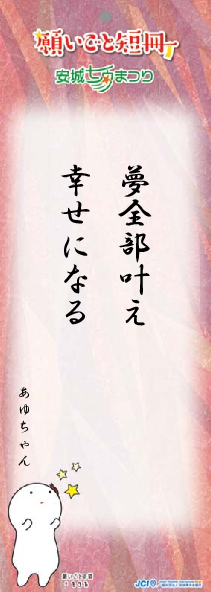 願いごと短冊
安城七夕まつり
夢全部叶え
幸せになる
あゆちゃん
JCI